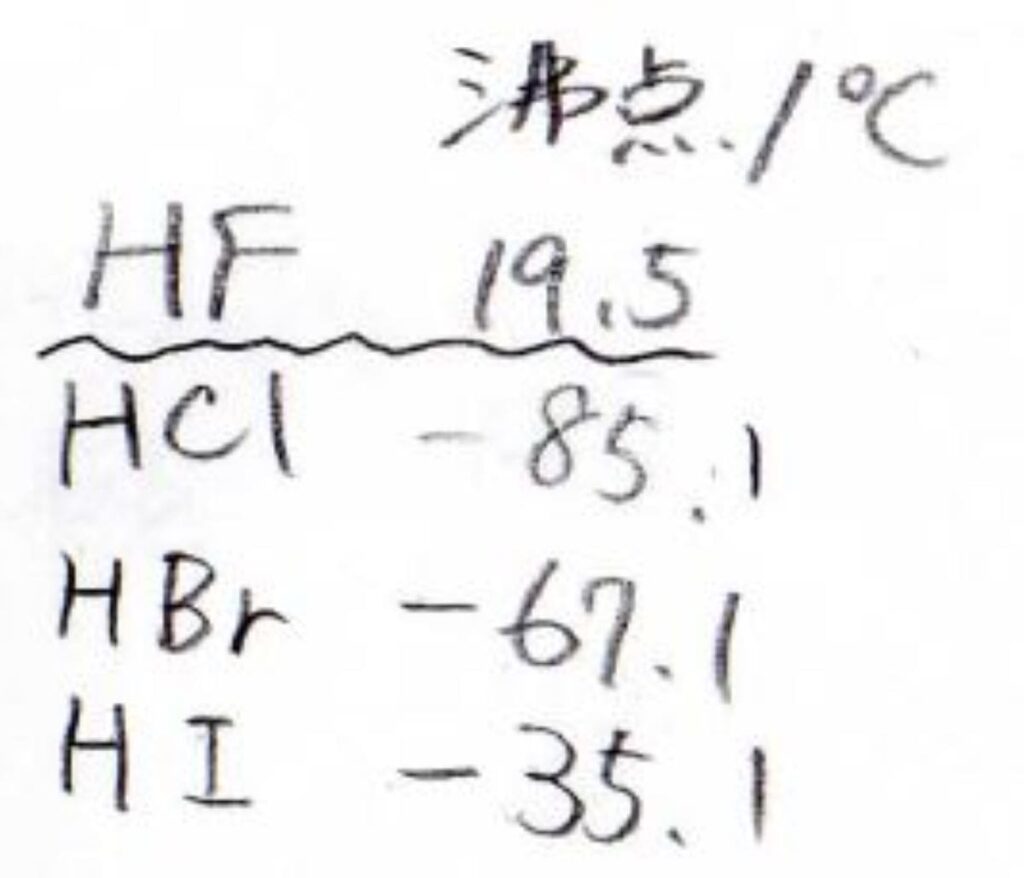 沸点/℃
HF 19.5
HCl -85.1
HBr -67.1
HI -35.1